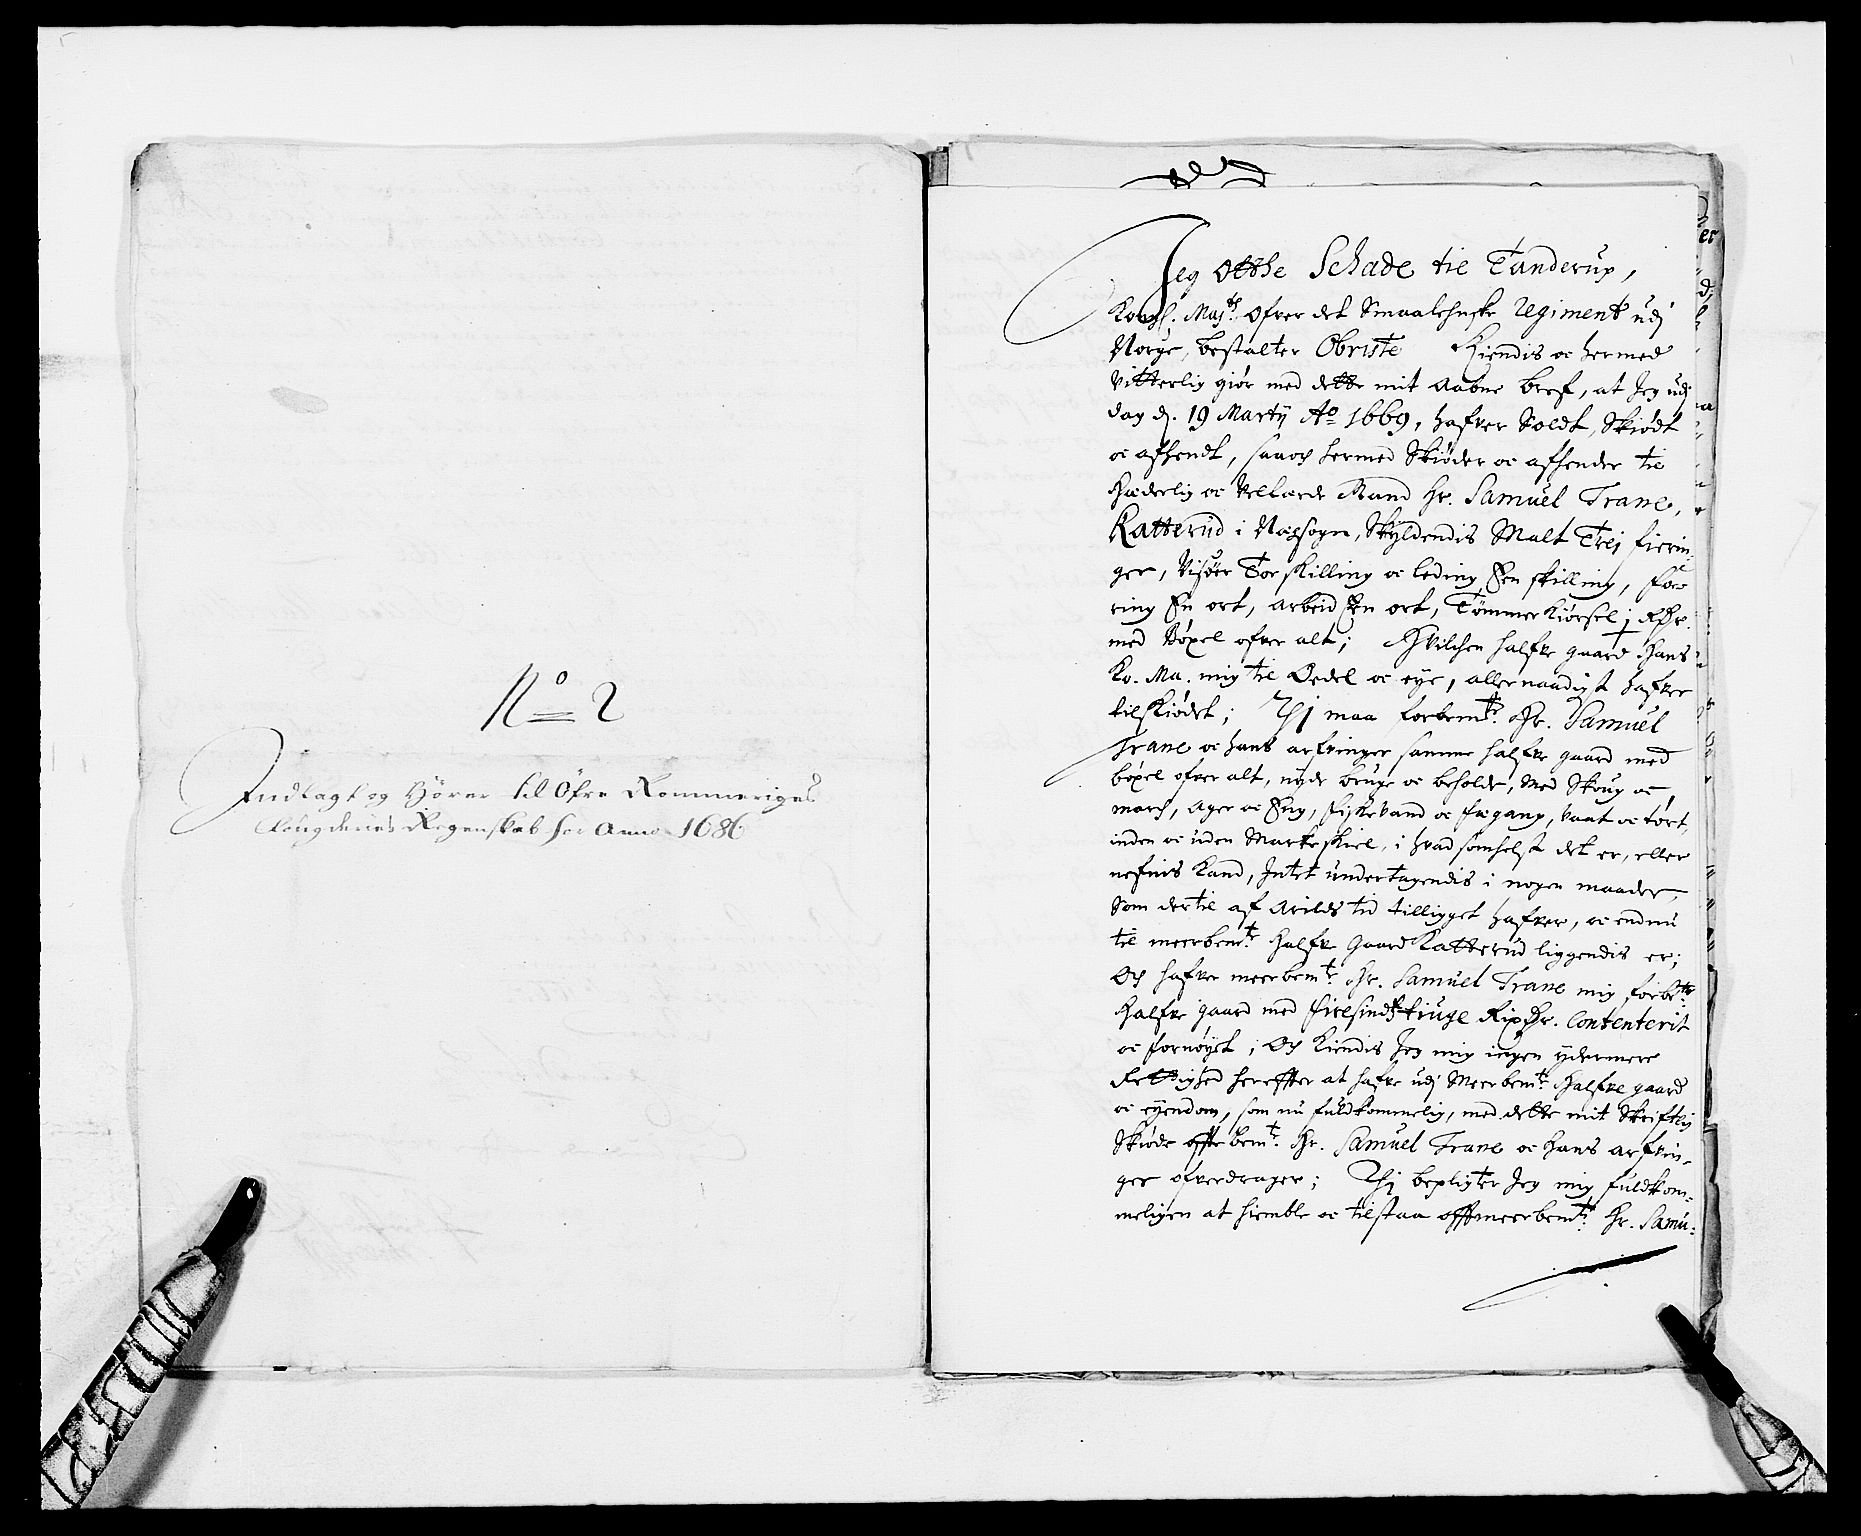 No 2
Indlagt og Hörer til Öfre Rommeriges
fougderies Regenskab for Anno 1686
Jeg Otthe Schade til Tanderup,
Kongl. Majts. Ofver det Smaalehnske Regiment udj
Norge, bestalter Obriste Kiendis oc hermed
vitterlig giör med dette mit Aabne bref, at Jeg udj
dag d. 19 Martij Ao 1669, hafver Soldt, Skiödt
oc afhendt, saaoch hermed Skiöder oc afhender til
Hæderlig oc Vellærde Mand Hr. Samuel Trane,
Katterud i Næssogn, Skyldendis Malt Trej fierin-
ger, Visöer Tor skilling oc leding Een skilling, foe
ring En ort, arbeid Een ort, Tömmer Kiörsel j Rdr.
med Böxel ofver alt; Hvilchen halfve gaard Hans
Ko. Ma. mig til Oedel oc eye, aller naadigst hafver
tilskiödet; Thj maa forbemte. Hr. Samuel
Trane oc hans arfvinger samme halfve gaard med
böxel ofver alt, nyde bruge oc beholde, Med Skoug oc
march, Ager oc Eng, fiskevand oc fægang, vaat oc tört,
inden oc uden Markeskiel, i hvad somhelst det er, eller
nefnis Kand, Intet undertagendis i nogen maader,
Som dertil af Arilds tid tilligget hafver, oc endnu
til meerbemte. halfve Gaard Katterud liggendis er;
Och hafver meerbemte. Hr. Samuel Trane mig forbte.
halfve gaard med firesindstiuge Rixdr. Contenterit
oc fornöyet; Och Kiendis Jeg mig ingen ydermere
Rettighed hereffter at hafve udj Meerbemte. halfve gaard
oc eyendom, som nu fuldkommelig, med dette mit Skriftlig
Skiöde offte bemte. Hr. Samuel Trane oc Hans arfvin-
ger ofverdrager; Thj bepligter Jeg mig fuldkom-
meligen at hiemble oc tilstaa offtmeerbemte. Hr. Samu-